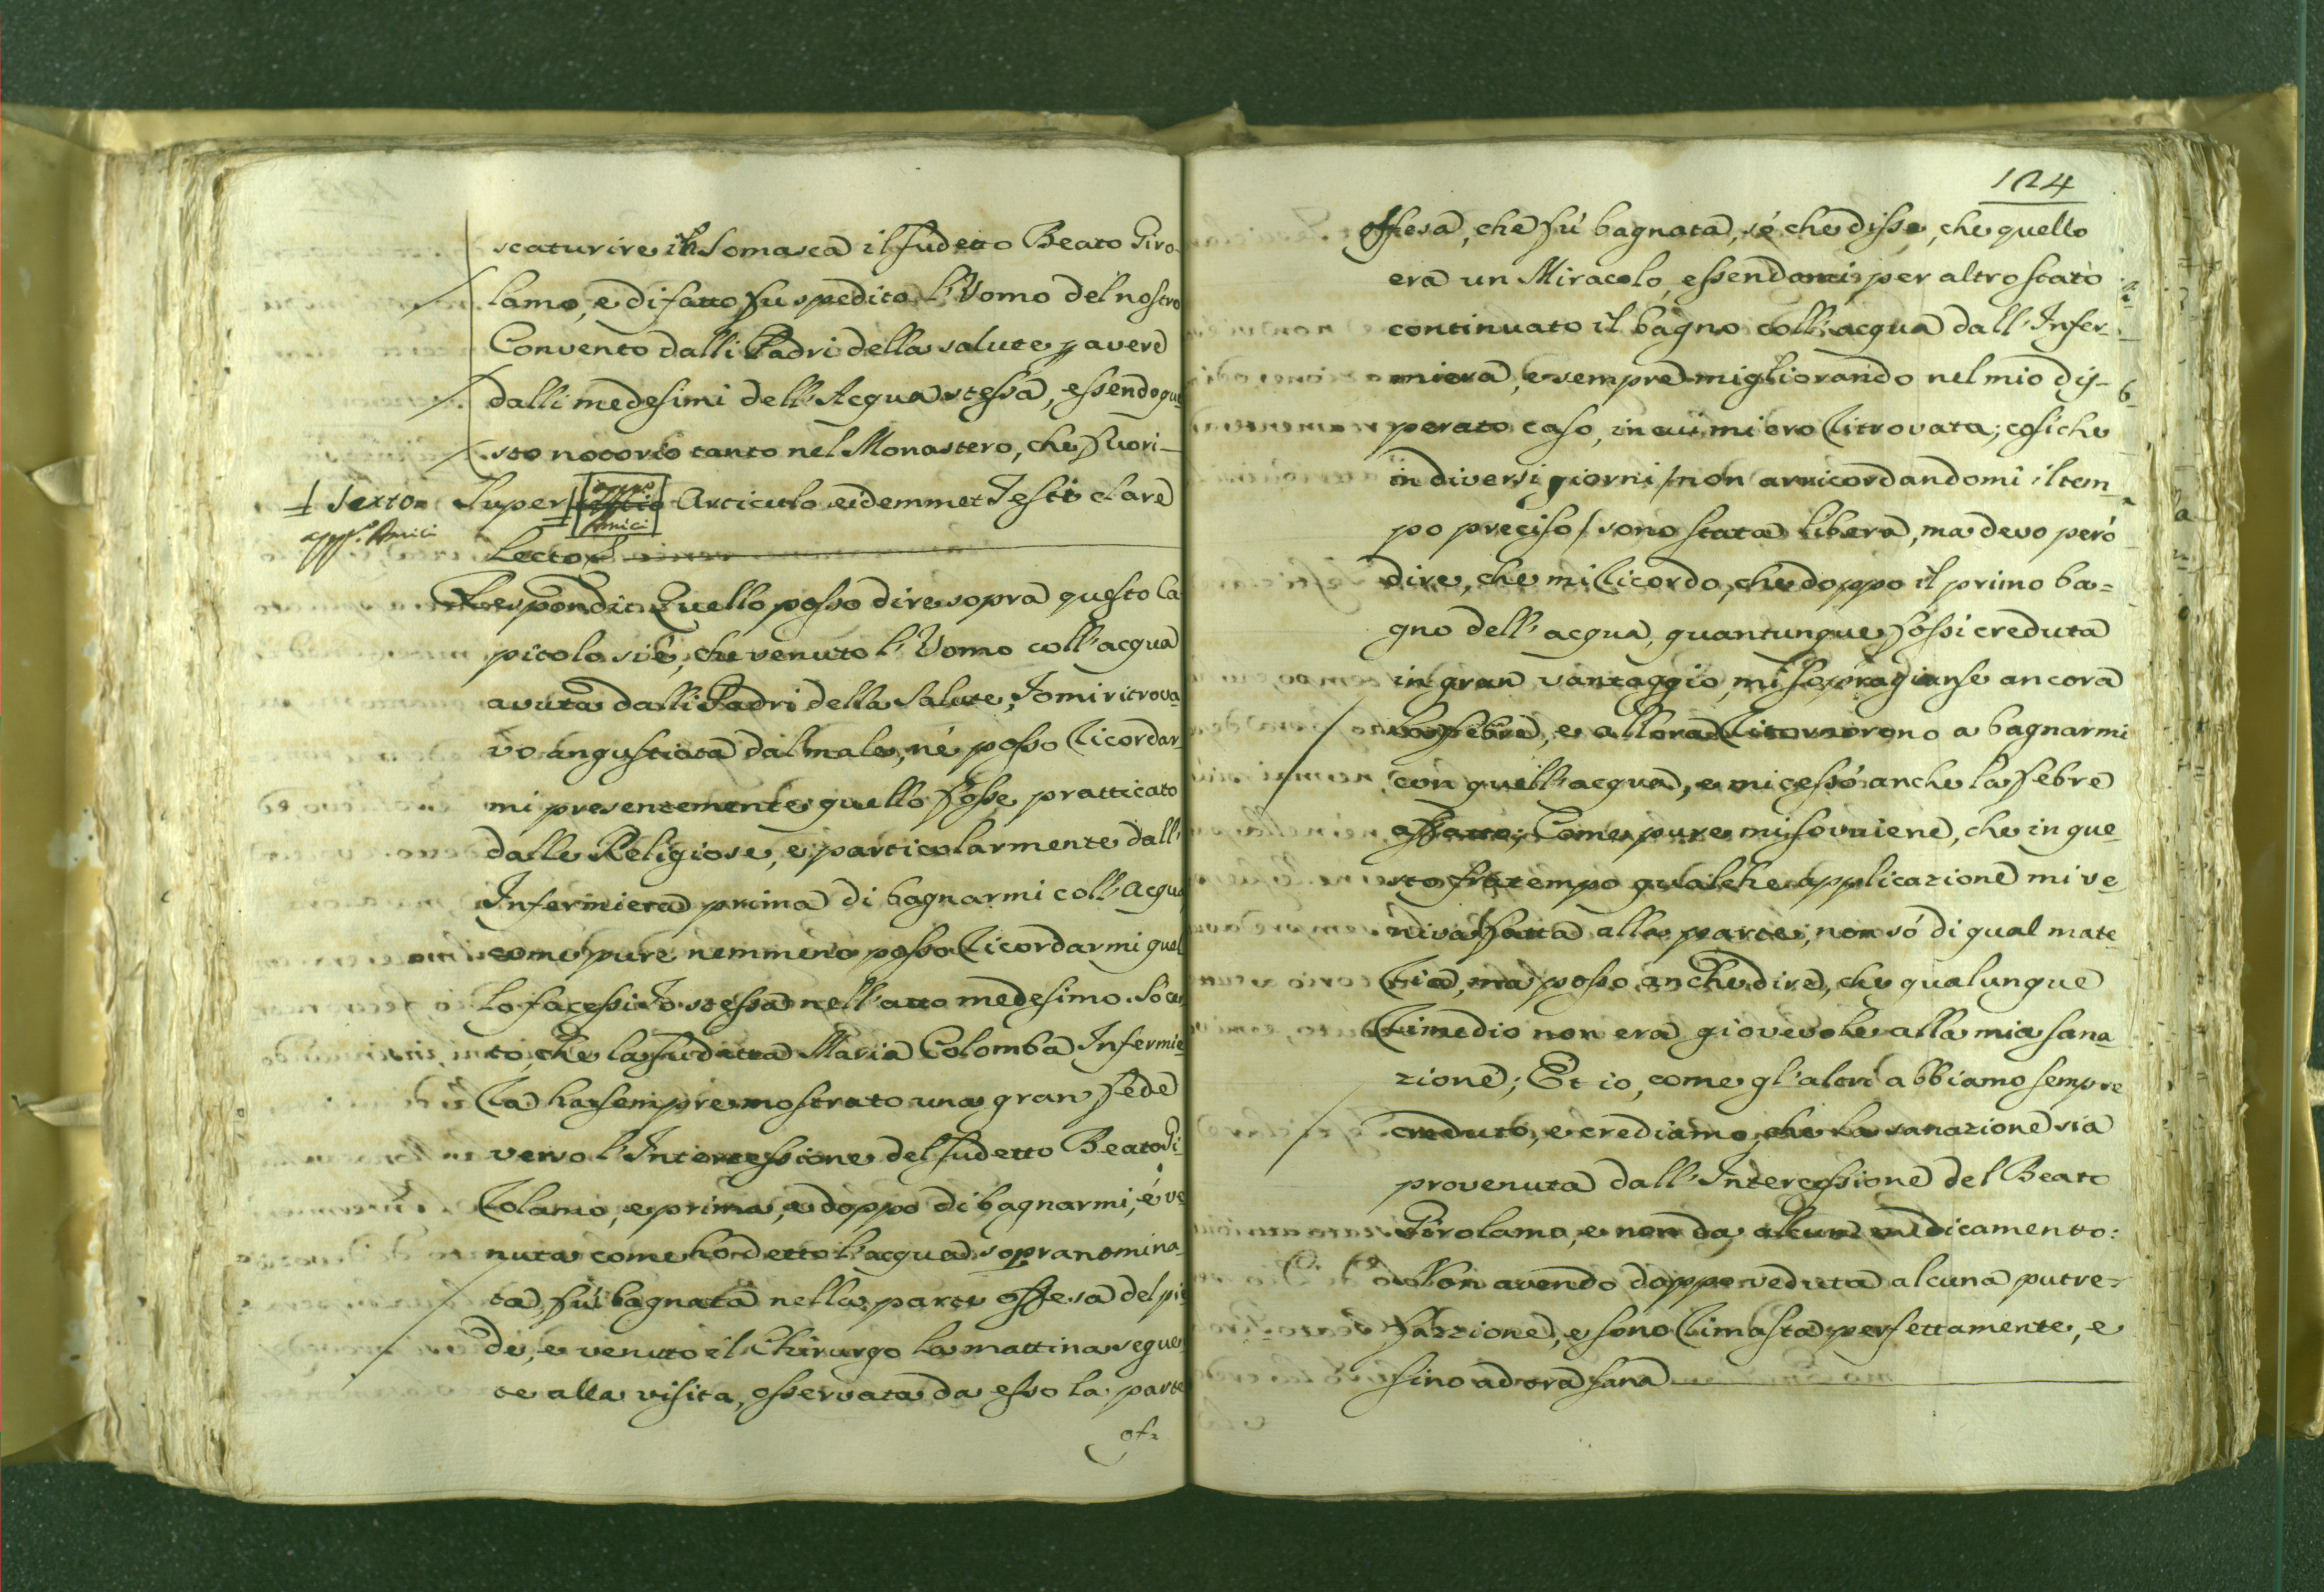 scaturire in Somasca il sudetto Beato Giro-
lamo, e di fatto fu spedito l'Uomo del nostro
Convento dalli Padri della salute p avere
dalli medesimi dell'Acqua stessa, essendo que
sto notorio tanto nel Monastero, che fuori-
+ Sexto= Super Articulo eidemmet Testi clare
app.o Amici Lecto
Respondit Quello posso dire sopra questo Ca
pitolo si è, che venuto l'Uomo coll'acqua
avuta dalli Padri della Salute, Io mi ritrova
vo angustiata dal male, né posso Ricordar
mi presentemente quello fosse pratticato
dalle Religiose, e particolarmente dall'
Infermiera prima di bagnarmi coll'Acqua
come pure nemmeno posso Ricordarmi quel
lo facessi Io stessa nell'atto medesimo. Sò cer
to, che la sudetta Maria Colomba Infermie
Ra ha sempre mostrato una gran fede
verso l'Intercessione del sudetto Beato Gi
Rolamo, e prima, e doppo di bagnarmi, è ve
nuta come hò detto l'acqua sopranomina
ta, fui bagnata nella parte offesa del pie
de, e venuto il Chirurgo la mattina seguen
te alla visita, osservata da esso la parte
of=
124
offesa, che fù bagnata, sé che disse, che quello
era un Miracolo, essendomi per altro stato
continuato il bagno coll'acqua dall'Infer-
miera, e sempre migliorando nel mio dis-
perato caso, in cui mi ero Ritrovata; cosiche
in diversi giorni / non arricordandomi il tem
po preciso / sono stata libera, ma devo però
dire, che mi Ricordo, che doppo il primo ba=
gno dell'acqua, quantunque fossi creduta
in gran vantaggio, mi sopragiunse ancora
la febre, e allora Ritornorono a bagnarmi
con quell'acqua, e mi cessò anche la febre
affatto; Come pure mi soviene, che in que
sto fratempo qualche applicazione mi ve
niva fatta alla parte, non só di qual mate
Ria, ma posso anche dire, che qualunque
Rimedio non era giovevole alla mia sana
zione; Et io, come gl'altri abbiamo sempre
creduto, e crediamo, che la sanazione sia
provenuta dall'Intercessione del Beato
Girolamo, e non da alcun medicamento:
Non avendo doppo veduta alcuna putre=
fazzione, e sono Rimasta perfettamente, e
sino ad ora sana